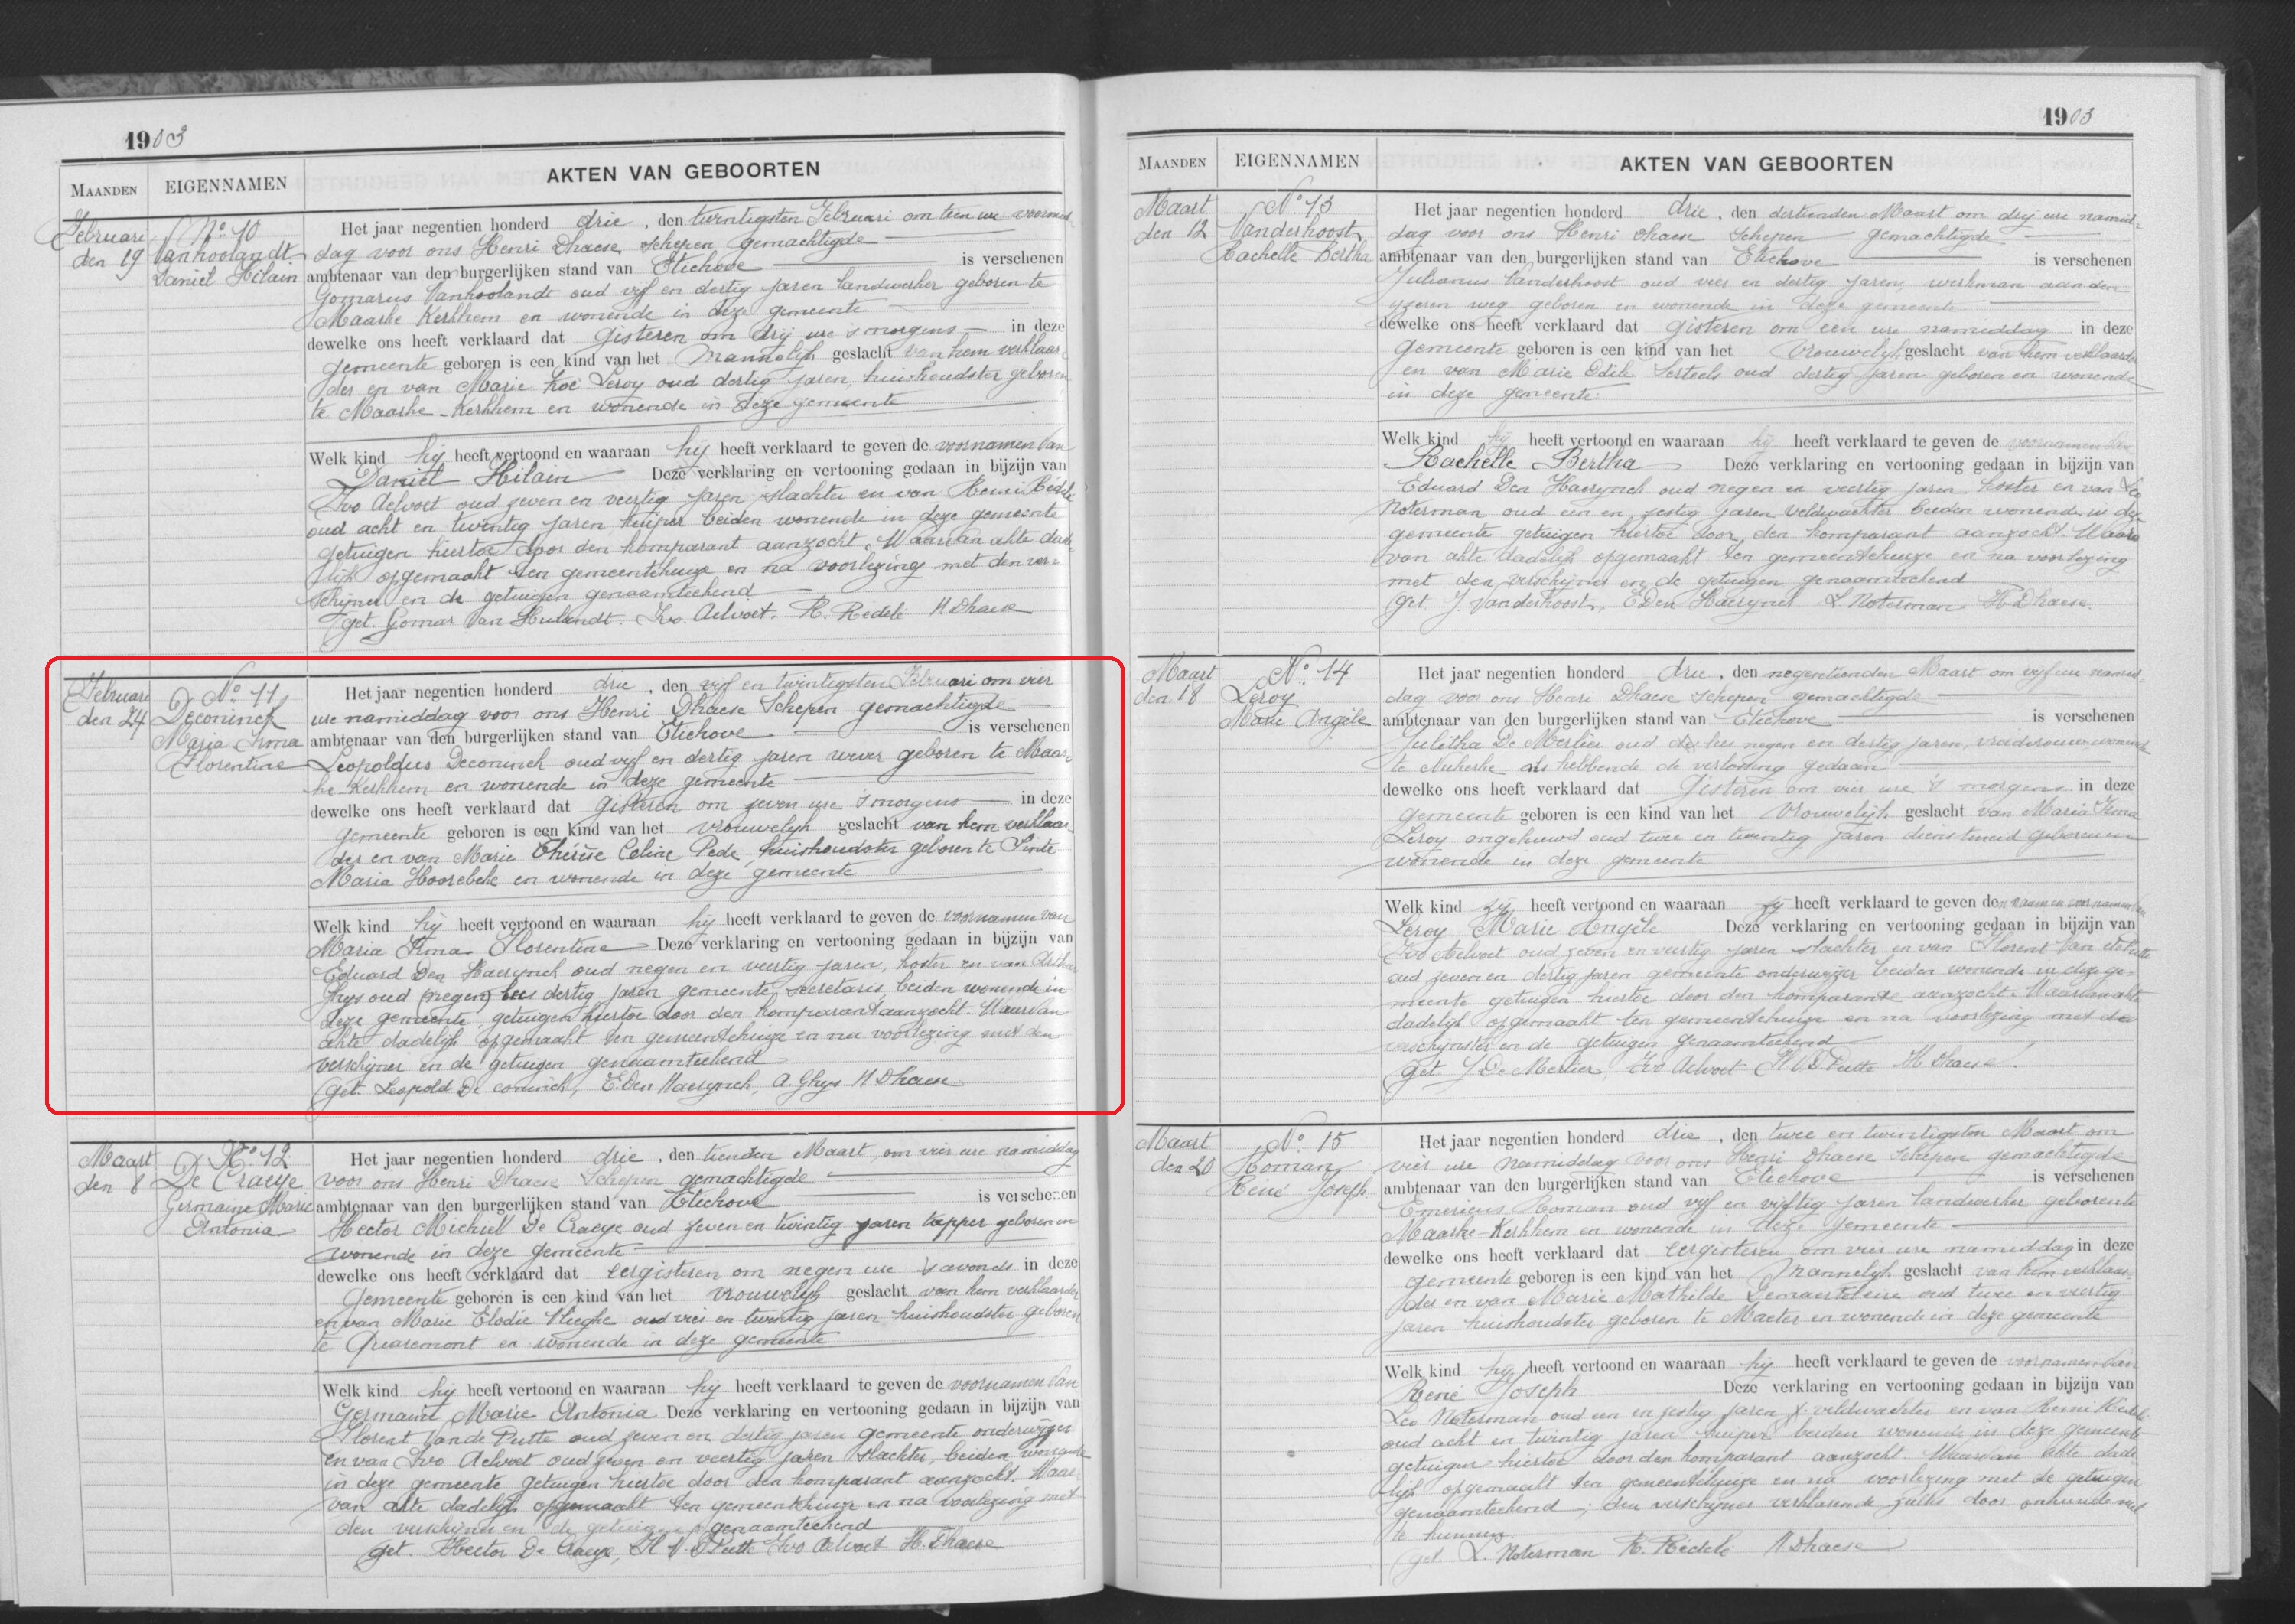 1903
MAANDEN EIGENNAMEN AKTEN VAN GEBOORTEN
Februari
den 19
No 10
Vanhoolandt
Daniël Hilain
Het jaar negentien honderd drie, den twintigsten Februari om tien ure voormid
dag voor ons Henri Dhaese, Schepen gemachtigde
ambtenaar van den burgerlijken stand van Etichove is verschenen
Gomarus Vanhoolandt oud vijf en dertig jaren landwerker geboren te
Maarke Kerkhem en wonende in deze gemeente
dewelke ons heeft verklaard dat gisteren om drij ure 's morgens in deze
gemeente geboren is een kind van het mannelijk geslacht van hem verklaar-
der en van Marie Zoé Leroy oud dertig jaren, huishoudster geboren
te Maarke-Kerkhem en wonende in deze gemeente
Welk kind hij heeft vertoond en waaraan hij heeft verklaard te geven de voornamen van
Daniël Hilain Deze verklaring en vertooning gedaan in bijzijn van
Ivo Aelvoet oud zeven en veertig jaren slachter en van Remi Redelé
oud acht en twintig jaren kuiper beiden wonende in deze gemeente
getuigen hiertoe door den komparant aanzocht. Waarvan akte dade-
lijk opgemaakt ten gemeentehuize en na voorlezing met den ver-
schijner en de getuigen genaamteekend
get. Gomar Van Hulandt. Ivo. Aelvoet. R. Redelé H Dhaese
Februari
den 24
No 11
Deconinck
Maria Irma
Florentine
Het jaar negentien honderd drie, den vijf en twintigsten Februari om vier
ure namiddag voor ons Henri Dhaese Schepen gemachtigde
ambtenaar van den burgerlijken stand van Etichove is verschenen
Leopoldus Deconinck oud vijf en dertig jaren wever geboren te Maar-
ke-Kerkhem en wonende in deze gemeente
dewelke ons heeft verklaard dat gisteren om zeven ure 's morgens in deze
gemeente geboren is een kind van het vrouwelijk geslacht van hem verklaar-
der en van Marie Thérèse Celine Pede, huishoudster geboren te Sinte
Maria Hoorebeke en wonende in deze gemeente
Welk kind hij heeft vertoond en waaraan hij heeft verklaard te geven de voornamen van
Maria Irma Florentine Deze verklaring en vertooning gedaan in bijzijn van
Eduard Den Haerynck oud negen en veertig jaren, koster en van Arthur
Ghys oud (negen) lees dertig jaren gemeente secretaris beiden wonende in
deze gemeente, getuigen hiertoe door den komparant aanzocht. Waarvan
akte dadelijk opgemaakt ten gemeentehuize en na voorlezing met den
verschijner en de getuigen genaamteekend
get. Leopold De coninck, E. Den Haerynck, A. Ghys H Dhaese
Maart
den 8
No 12
De Craeye
Germaine Marie
Antonia
Het jaar negentien honderd drie, den tienden Maart, om vier ure namiddag
voor ons Henri Dhaese Schepen gemachtigde
ambtenaar van den burgerlijken stand van Etichove is verschenen
Hector Michiell De Craeye oud zeven en twintig jaren tapper geboren en
wonende in deze gemeente
dewelke ons heeft verklaard dat eergisteren om negen ure 's avonds in deze
gemeente geboren is een kind van het vrouwelijk geslacht van hem verklaarder
en van Marie Elodie Vlieghe oud vier en twintig jaren huishoudster geboren
te Quaremont en wonende in deze gemeente
Welk kind hij heeft vertoond en waaraan hij heeft verklaard te geven de voornamen van
Germaine Marie Antonia Deze verklaring en vertooning gedaan in bijzijn van
Florent Van de Putte oud zeven en dertig jaren gemeente onderwijzer
en van Ivo Aelvoet oud zeven en veertig jaren slachter, beiden wonende
in deze gemeente getuigen hiertoe door den komparant aanzocht. Waar-
van akte dadelijk opgemaakt ten gemeentehuize en na voorlezing met
den verschijner en de getuigen genaamteekend
get. Hector De Craeye, Fl V. d Putte Ivo Aelvoet H. Dhaese
1903
MAANDEN EIGENNAMEN AKTEN VAN GEBOORTEN
Maart
den 12
No 13
Vanderhoost
Rachelle Bertha
Het jaar negentien honderd drie, den dertienden Maart om drij ure namid-
dag voor ons Henri Dhaese Schepen gemachtigde
ambtenaar van den burgerlijken stand van Etichove is verschenen
Julianus Vanderhoost oud vier en dertig jaren, werkman aan den
yzeren weg geboren en wonende in deze gemeente
dewelke ons heeft verklaard dat gisteren om een ure namiddag in deze
gemeente geboren is een kind van het vrouwelijk geslacht van hem verklaarder
en van Marie Odile Serteels oud dertig jaren geboren en wonende
in deze gemeente
Welk kind hij heeft vertoond en waaraan hij heeft verklaard te geven de voornamen van
Rachelle Bertha Deze verklaring en vertooning gedaan in bijzijn van
Eduard Den Haerynck oud negen en veertig jaren koster en van Leo
Noterman oud een en zestig jaren veldwachter beiden wonende in deze
gemeente getuigen hiertoe door den komparant aanzocht. Waar-
van akte dadelijk opgemaakt ten gemeentehuize en na voorlezing
met den verschijner en de getuigen genaamteekend
get. J. Vanderhoost, E Den Haerynck L. Noterman H. Dhaese.
Maart
den 18
No 14
Leroy
Marie Angèle
Het jaar negentien honderd drie, den negentienden Maart om vijf ure namid-
dag voor ons Henri Dhaese Schepen gemachtigde
ambtenaar van den burgerlijken stand van Etichove is verschenen
Julitha De Merlier oud lees negen en dertig jaren, vroedvrouw wonende
te Nukerke als hebbende de verlossing gedaan
dewelke ons heeft verklaard dat gisteren om vier ure 's morgens in deze
gemeente geboren is een kind van het vrouwelijk geslacht van Maria Irma
Leroy ongehuwd oud twee en twintig jaren dienstmeid geboren en
wonende in deze gemeente
Welk kind zij heeft vertoond en waaraan zij heeft verklaard te geven den naam en voornamen van
Leroy Marie Angèle Deze verklaring en vertooning gedaan in bijzijn van
Ivo Aelvoet oud zeven en veertig jaren slachter en van Florent Van de Putte
oud zeven en dertig jaren gemeente onderwijzer beiden wonende in deze ge-
meente getuigen hiertoe door den komparante aanzocht. Waarvan akte
dadelijk opgemaakt ten gemeentehuize en na voorlezing met de
verschijnster en de getuigen genaamteekend
get J. De Merlier, Ivo Aelvoet Fl V D Putte H. Dhaese.
Maart
den 20
No 15
Homan
René Joseph
Het jaar negentien honderd drie, den twee en twintigsten Maart om
vier ure namiddag voor ons Henri Dhaese Schepen gemachtigde
ambtenaar van den burgerlijken stand van Etichove is verschenen
Emericus Homan oud vijf en vijftig jaren landwerker geboren te
Maarke-Kerkhem en wonende in deze gemeente
dewelke ons heeft verklaard dat eergisteren om vier ure namiddag in deze
gemeente geboren is een kind van het mannelijk geslacht van hem verklaar-
der en van Marie Mathilde oud twee en veertig
jaren huishoudster geboren te Maeter en wonende in deze gemeente
Welk kind hij heeft vertoond en waaraan hij heeft verklaard te geven de voornamen van
René Joseph Deze verklaring en vertooning gedaan in bijzijn van
Leo Noterman oud een en zestig jaren veldwachter en van Remi Redelé
oud acht en twintig jaren kuiper beiden wonende in deze gemeente
getuigen hiertoe door den komparant aanzocht. Waarvan akte dade-
lijk opgemaakt ten gemeentehuize en na voorlezing met de getuigen
genaamteekend; den verschijner verklarende zulks door onkunde niet
te kunnen.
get L. Noterman R. Redelé H Dhaese